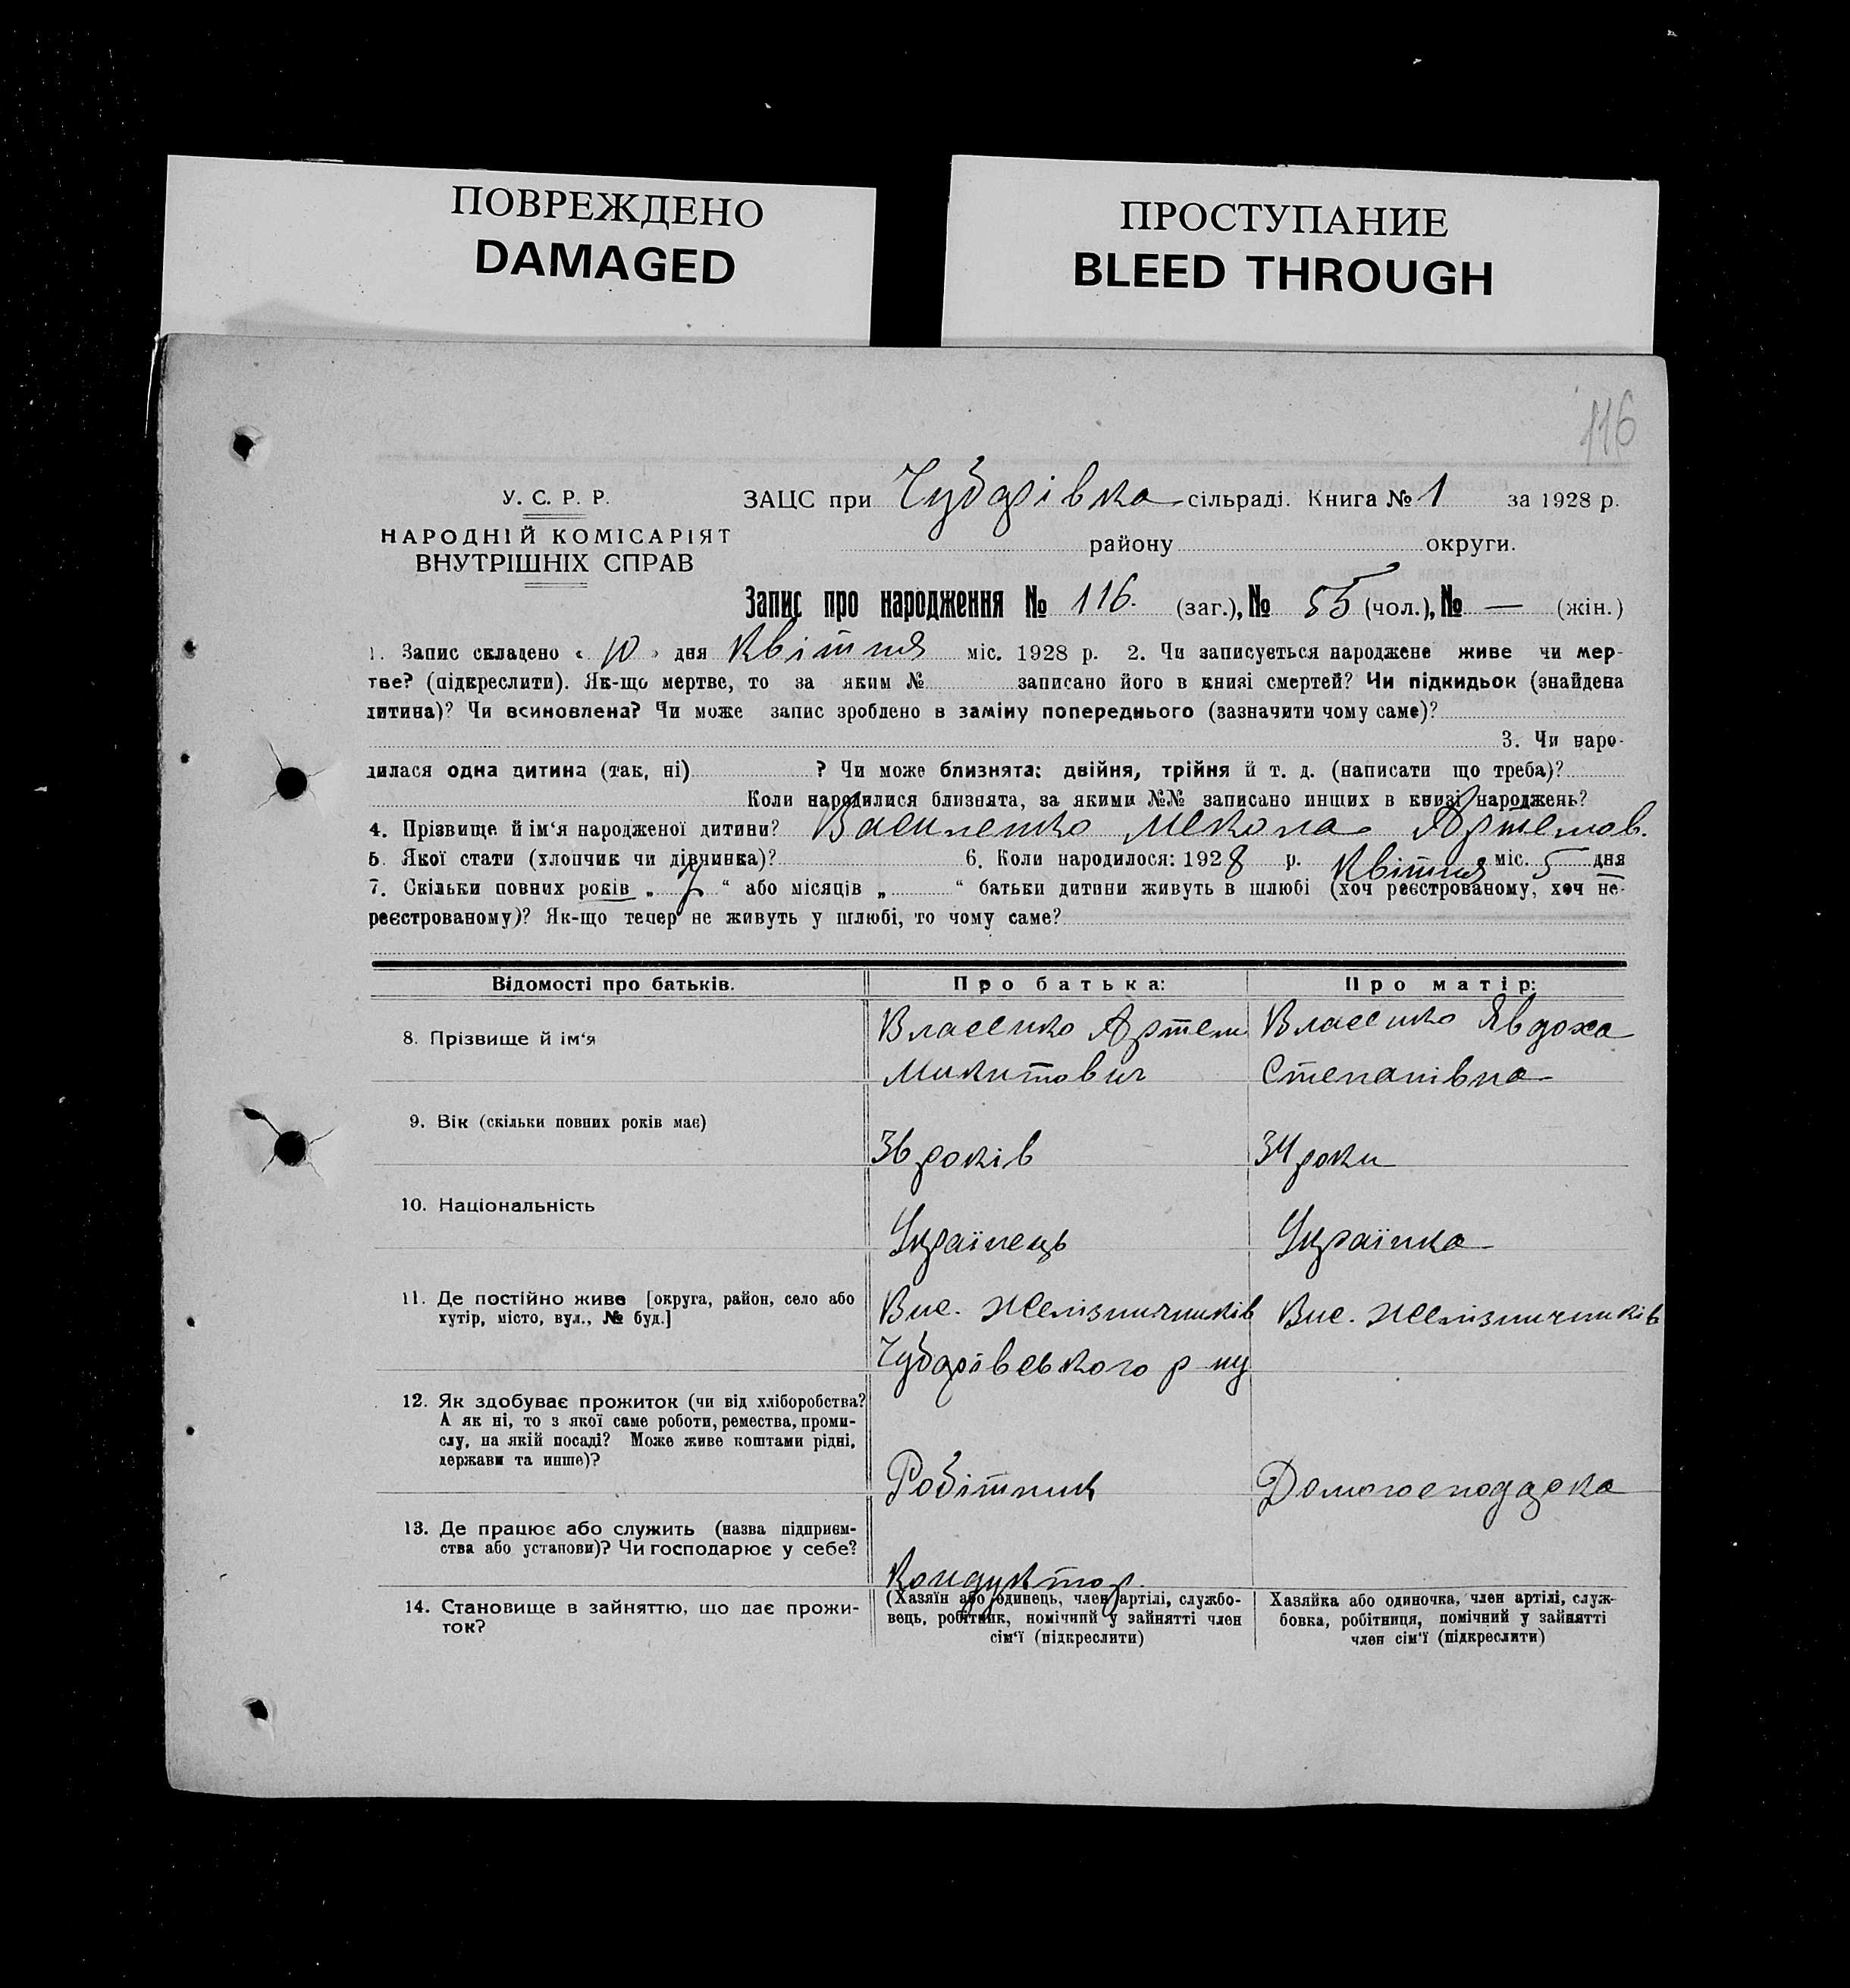 ПОВРЕЖДЕНО
DAMAGED
ПРОСТУПАНИЕ
BLEED THROUGH
116
У. С. Р. Р.
НАРОДНІЙ КОМІСАРІЯТ
ВНУТРІШНІХ СПРАВ
ЗАЦС при Чубарівка сільраді. Книга № 1 за 1928 р.
району округи.
Запис про народження № 116. (заг.), № 55 (чол.), № — (жін.)
1. Запис складено « 10 » дня Квітня міс. 1928 р. 2. Чи записується народжене живе чи мер-
тве? (підкреслити). Як-що мертве, то за яким № записано його в книзі смертей? Чи підкидьок (знайдена
дитина)? Чи всиновлена? Чи може запис зроблено в заміну попереднього (зазначити чому саме)?
3. Чи наро-
дилася одна дитина (так, ні) ? Чи може близнята: двійня, трійня й т. д. (написати що треба)?
Коли народилися близнята, за якими №№ записано инших в книзі народжень?
4. Прізвище й ім'я народженої дитини? Мекола Артемов.
5. Якої стати (хлопчик чи дівчинка)? 6. Коли народилося: 1928 р. Квітня міс. 5 дня
7. Скільки повних років „ “ або місяців „ “ батьки дитини живуть в шлюбі (хоч реєстрованому, хоч не-
реєстрованому)? Як-що тепер не живуть у шлюбі, то чому саме?
Відомості про батьків. Про батька: Про матір:
8. Прізвище й ім'я Власенко Артем Власенко Явдоха
Микитович Степанівна
9. Вік (скільки повних років має)
36 років 34 роки
10. Національність
Українець Українка
11. Де постійно живе [округа, район, село або Вис. Желізничників Вис. Желізничників
хутір, місто, вул., № буд.]
Чубарівського р-ну
12. Як здобуває прожиток (чи від хліборобства?
А як ні, то з якої саме роботи, ремества, проми-
слу, на якій посаді? Може живе коштами рідні,
держави та инше)?
Робітник Домогосподарка
13. Де працює або служить (назва підприєм-
ства або установи)? Чи господарює у себе?
Кондуктор.
14. Становище в зайняттю, що дає прожи-
ток?
(Хазяїн або одинець, член артілі, службо-
вець, робітник, помічний у зайнятті член
сім'ї (підкреслити)
Хазяйка або одиночка, член артілі, служ-
бовка, робітниця, помічний у зайнятті
член сім'ї (підкреслити)